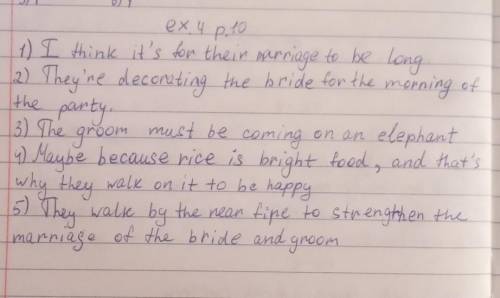 ex.4 p.10
1) I think it's for their marriage to be long
2) They're decorating the bride for the morning of
the party.
3) The groom must be coming on an elephant
4) Maybe because rice is bright food, and that's
why they walk on it to be happy
5) They walk by the near fire to strengthen the
marriage of the bride and groom